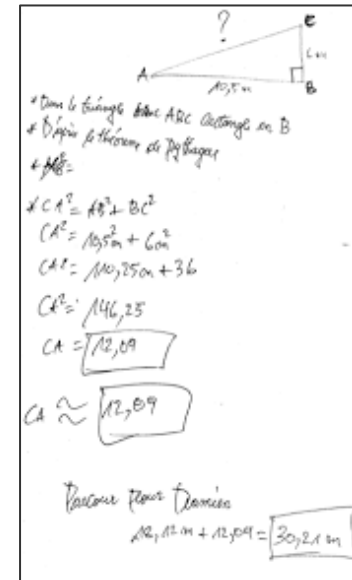 ?
C
6 m
A
10,5 m
B
* Dans le triangle ABC rectangle en B
* D'après le théorème de Pythagore
* CA² = AB² + BC²
CA² = 10,5² + 6²
CA² = 110,25 + 36
CA² = 146,25
CA = 12,09
CA ≈ 12,09
Parcour pour Damien
12 m + 12,09 = 30,21 m